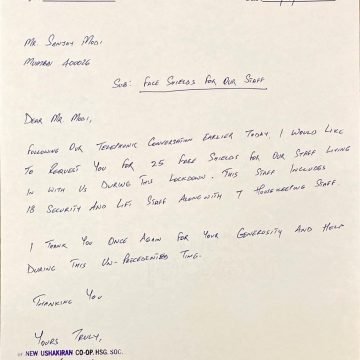 Mr. Sanjay Modi
Mumbai 400026
Sub: Face Shields For Our Staff
Dear Mr. Modi,
Following Our Telephonic Conversation Earlier Today, I Would Like
To Request You For 25 Face Shields For Our Staff Living
In With Us During This Lockdown. This Staff Includes
18 Security And Lift Staff Alongwith 7 Housekeeping Staff
I Thank You Once Again For Your Generosity And Help
During This Un-Precedented Time.
Thanking You
Yours Truly,
NEW USHAKIRAN CO-OP. HSG. SOC.